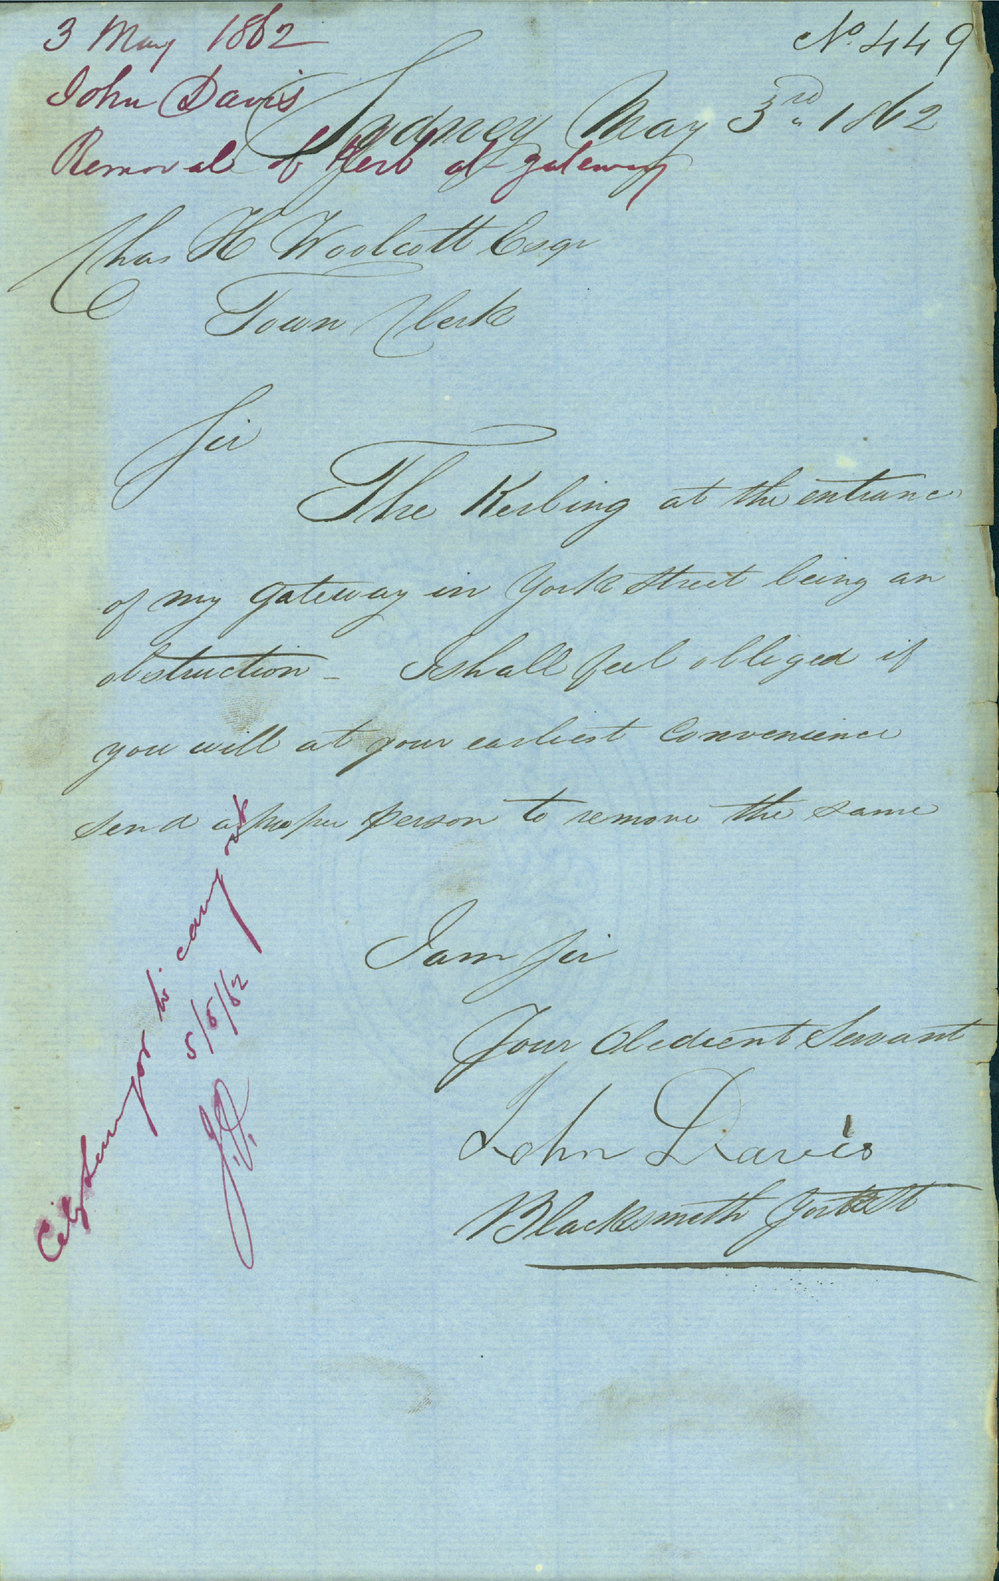 3 May 1862
No. 449
John Davis
Sydney May 3rd 1862
Removal of Kerb at gateway
Chas H Woolcott Esqr
Town Clerk
Sir
The Kerbing at the entrance
of my Gateway in York Street being an
obstruction - I shall feel obliged if
you will at your earliest Convenience
send a proper person to remove the same
I am Sir
Your Obedient Servant
John Davis
Blacksmith York St
City Surveyor to carry out
5/5/62